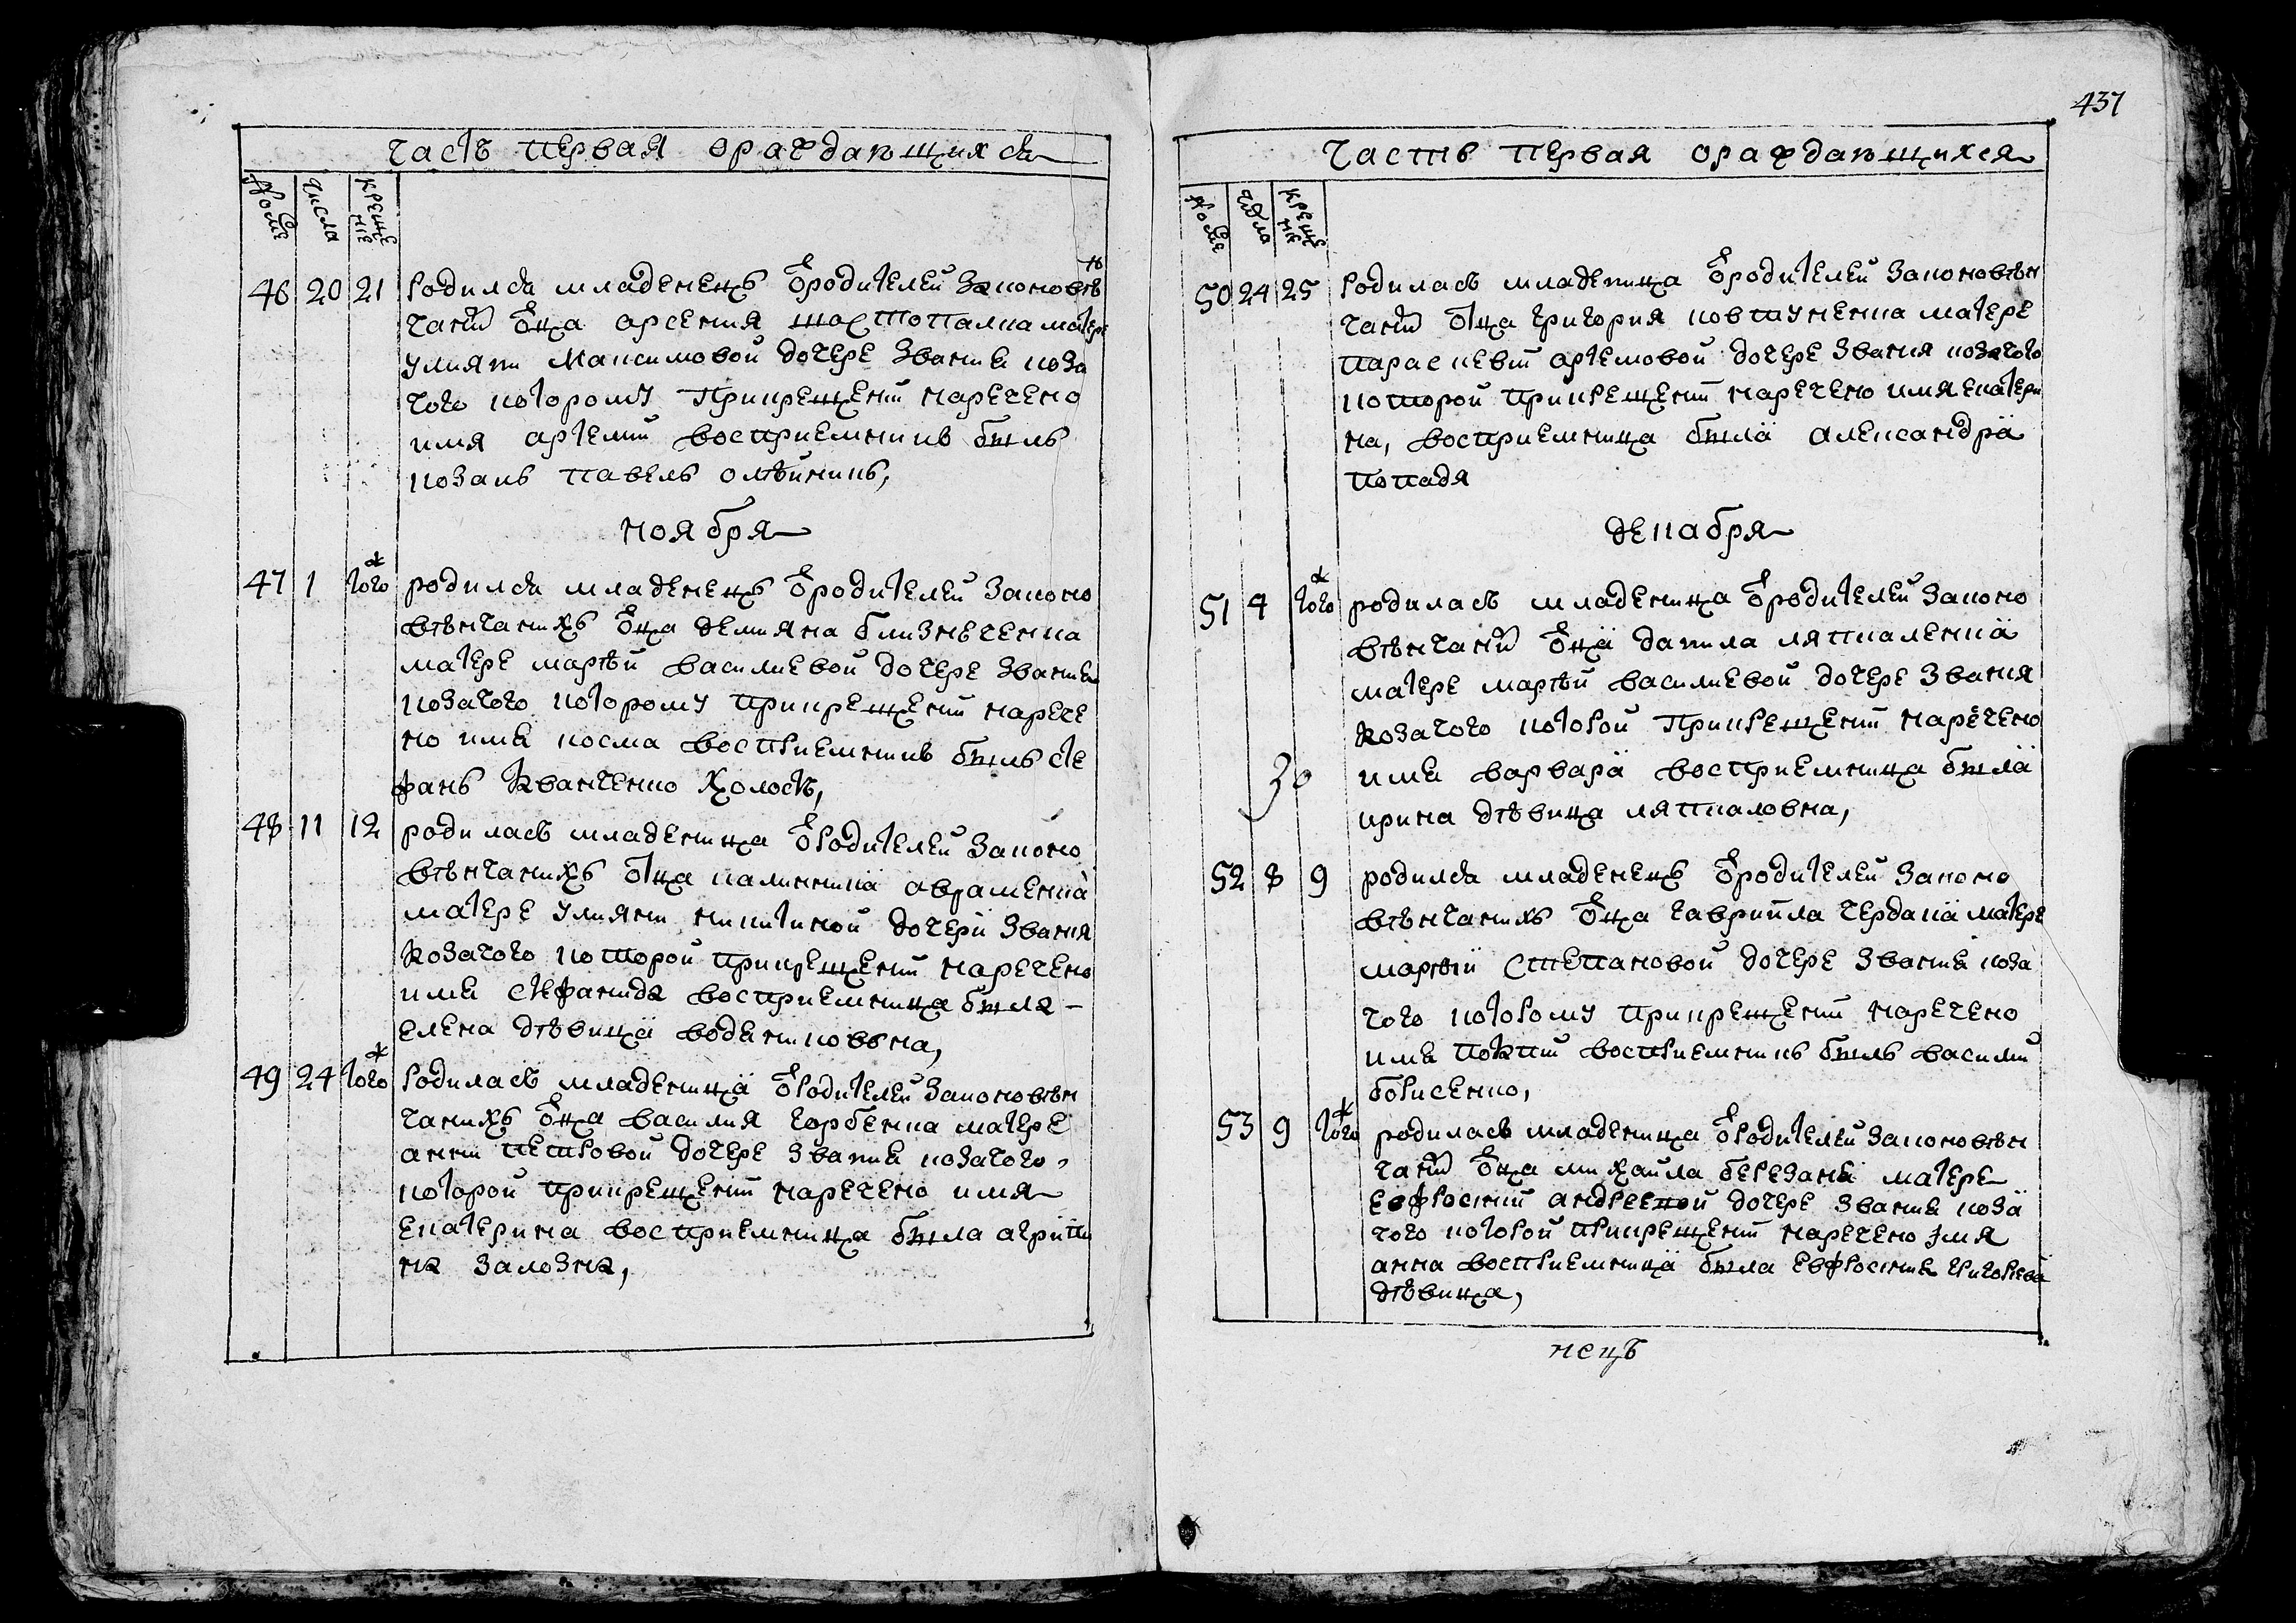 437
часть первая ораждающихся
Роди числа крещение
46 20 21 родился младенецъ ѿ родителей законовѣн
чаний отца арсения матере
улияни максимовой дочере звания коза
чого которому при крещении наречено
имя артемий восприемникъ былъ
козакъ павелъ олѣйникъ,
ноября
47 1 тогож родился младенецъ ѿ родителей законо
вѣнчанихъ отца демяна близнеченка
матере марѳи василиевой дочере звания
козачого которому при крещении нарече
но имя косма восприемникъ былъ сте
фанъ кванченко холость,
48 11 12 родилась младеница ѿ родителей законо
вѣнчанихъ отца калинника авраменка
матере улияни никитиной дочери звания
козачого которой при крещении наречено
имя стефанида восприемница была
елена дѣвица водяниковна,
49 24 тогож родилась младеница ѿ родителей законовѣн
чанихъ отца василия горбенка матере
анни петровой дочере звания козачого,
которой при крещении наречено имя
екатерина восприемница была агрипи
на залозна,
часть первая ораждающихся
Роди числа крещение
50 24 25 родилась младеница ѿ родителей законовѣн
чаний отца григория ковтуненка матере
параскевии артемовой дочере звания козачого
которой при крещении наречено имя екатери
на, восприемница была александра
попадя
декабря
51 4 тогож родилась младеница ѿ родителей законо
вѣнчаний отца данила ляпкаленка
матере марѳи василиевой дочере звания
козачого которой при крещении наречено
имя варвара восприемница была
30
ирина дѣвица ляпкаловна,
52 8 9 родился младенецъ ѿ родителей законо
вѣнчанихъ отца гавриила чердака матере
марѳи степановой дочере звания коза
чого которому при крещении наречено
имя восприемникъ былъ василий
борисенко,
53 9 тогож родилась младеница ѿ родителей законовѣн
чаний отца михаила березаня матере
евфросинии андреевной дочере звания коза
чого которой при крещении наречено имя
анна восприемница была евфросиния григорева
дѣвица,
нецъ